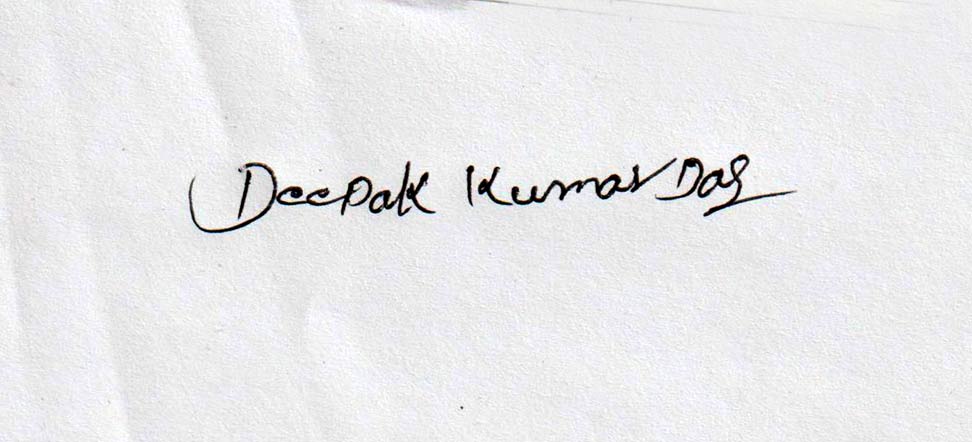 Deepak Kumar Das